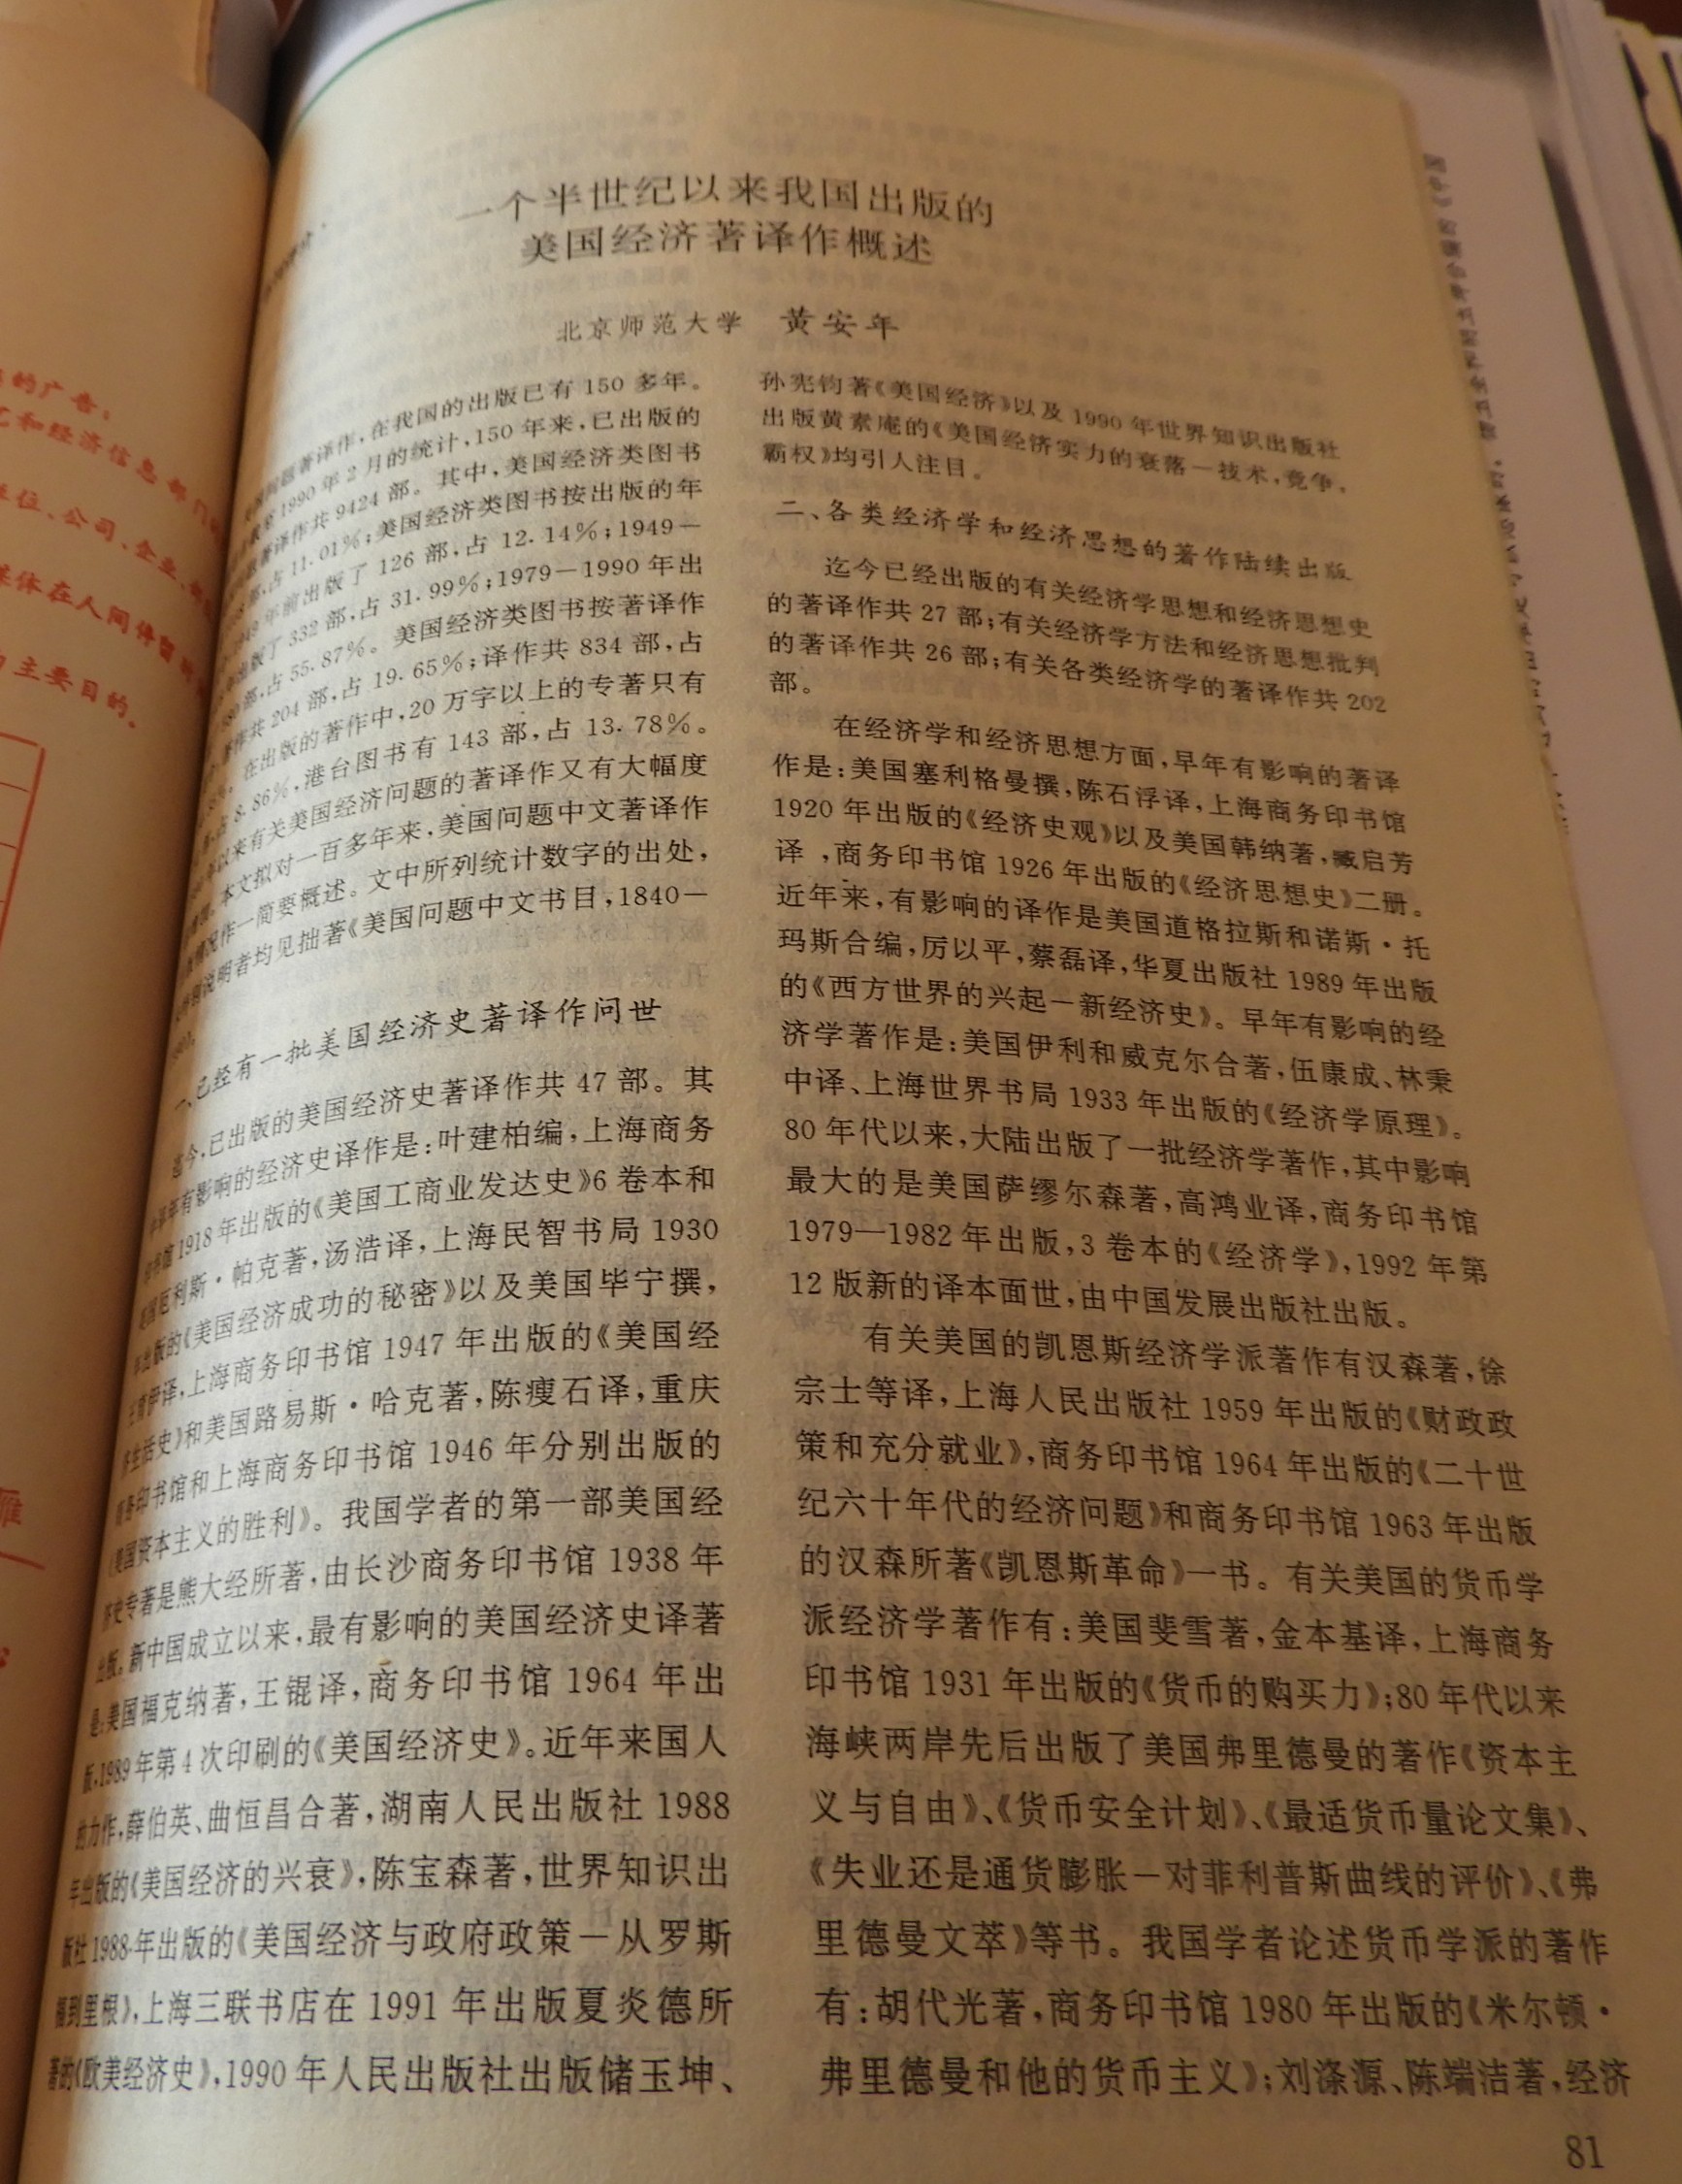 一个半世纪以来我国出版的
美国经济著译作概述
北京师范大学 黄安年
著译作,在我国的出版已有 150 多年。
1990 年 2 月的统计,150 年来,已出版的
著译作共 9424 部。其中,美国经济类图书
部,占 11.01%;美国经济类图书按出版的年
年前出版了 126 部,占 12.14%;1949-
版了 332 部,占 31.99%;1979-1990 年出
部,占 55.87%。美国经济类图书按著译作
作共 204 部,占 19.65%;译作共 834 部,占
在出版的著作中,20 万字以上的专著只有
占 8.86%,港台图书有 143 部,占 13.78%。
年以来有关美国经济问题的著译作又有大幅度
本文拟对一百多年来,美国问题中文著译作
情况作一简要概述。文中所列统计数字的出处,
说明者均见拙著《美国问题中文书目,1840-
一、已经有一批美国经济史著译作问世
迄今,已出版的美国经济史著译作共 47 部。其
有影响的经济史译作是:叶建柏编,上海商务
书馆 1918 年出版的《美国工商业发达史》6 卷本和
利斯·帕克著,汤浩译,上海民智书局 1930
年出版的《美国经济成功的秘密》以及美国毕宁撰,
伊译,上海商务印书馆 1947 年出版的《美国经
济生活史》和美国路易斯·哈克著,陈瘦石译,重庆
商务印书馆和上海商务印书馆 1946 年分别出版的
《美国资本主义的胜利》。我国学者的第一部美国经
济史专著是熊大经所著,由长沙商务印书馆 1938 年
出版。新中国成立以来,最有影响的美国经济史译著
是:美国福克纳著,王锟译,商务印书馆 1964 年出
版,1989 年第 4 次印刷的《美国经济史》。近年来国人
的力作,薛伯英、曲恒昌合著,湖南人民出版社 1988
年出版的《美国经济的兴衰》,陈宝森著,世界知识出
版社 1988 年出版的《美国经济与政府政策-从罗斯
福到里根》,上海三联书店在 1991 年出版夏炎德所
著的《欧美经济史》,1990 年人民出版社出版储玉坤、
孙宪钧著《美国经济》以及 1990 年世界知识出版社
出版黄素庵的《美国经济实力的衰落-技术,竞争,
霸权》均引人注目。
二、各类经济学和经济思想的著作陆续出版
迄今已经出版的有关经济学思想和经济思想史
的著译作共 27 部;有关经济学方法和经济思想批判
的著译作共 26 部;有关各类经济学的著译作共 202
部。
在经济学和经济思想方面,早年有影响的著译
作是:美国塞利格曼撰,陈石浮译,上海商务印书馆
1920 年出版的《经济史观》以及美国韩纳著,臧启芳
译 ,商务印书馆 1926 年出版的《经济思想史》二册。
近年来,有影响的译作是美国道格拉斯和诺斯·托
玛斯合编,厉以平,蔡磊译,华夏出版社 1989 年出版
的《西方世界的兴起-新经济史》。早年有影响的经
济学著作是:美国伊利和威克尔合著,伍康成、林秉
中译、上海世界书局 1933 年出版的《经济学原理》。
80 年代以来,大陆出版了一批经济学著作,其中影响
最大的是美国萨缪尔森著,高鸿业译,商务印书馆
1979—1982 年出版,3 卷本的《经济学》,1992 年第
12 版新的译本面世,由中国发展出版社出版。
有关美国的凯恩斯经济学派著作有汉森著,徐
宗士等译,上海人民出版社 1959 年出版的《财政政
策和充分就业》,商务印书馆 1964 年出版的《二十世
纪六十年代的经济问题》和商务印书馆 1963 年出版
的汉森所著《凯恩斯革命》一书。有关美国的货币学
派经济学著作有:美国斐雪著,金本基译,上海商务
印书馆 1931 年出版的《货币的购买力》;80 年代以来
海峡两岸先后出版了美国弗里德曼的著作《资本主
义与自由》、《货币安全计划》、《最适货币量论文集》、
《失业还是通货膨胀-对菲利普斯曲线的评价》、《弗
里德曼文萃》等书。我国学者论述货币学派的著作
有:胡代光著,商务印书馆 1980 年出版的《米尔顿·
弗里德曼和他的货币主义》;刘涤源、陈端洁著,经济
81
的广告;
和经济信息部门
单位、公司、企业、
媒体在人间停留
主要目的。